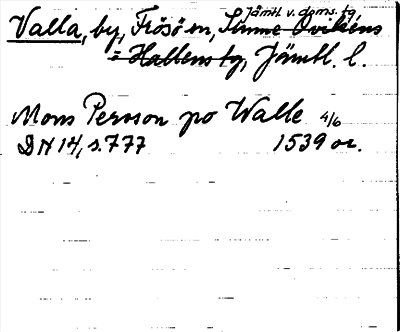 Jämtl. v. doms. tg
Valla, by, Frösö sn, Sunne Ovikens
= Hallens tg, Jämtl. l.
Mons Persson po Walle 4/6
DN 14, s. 777 1539 or.